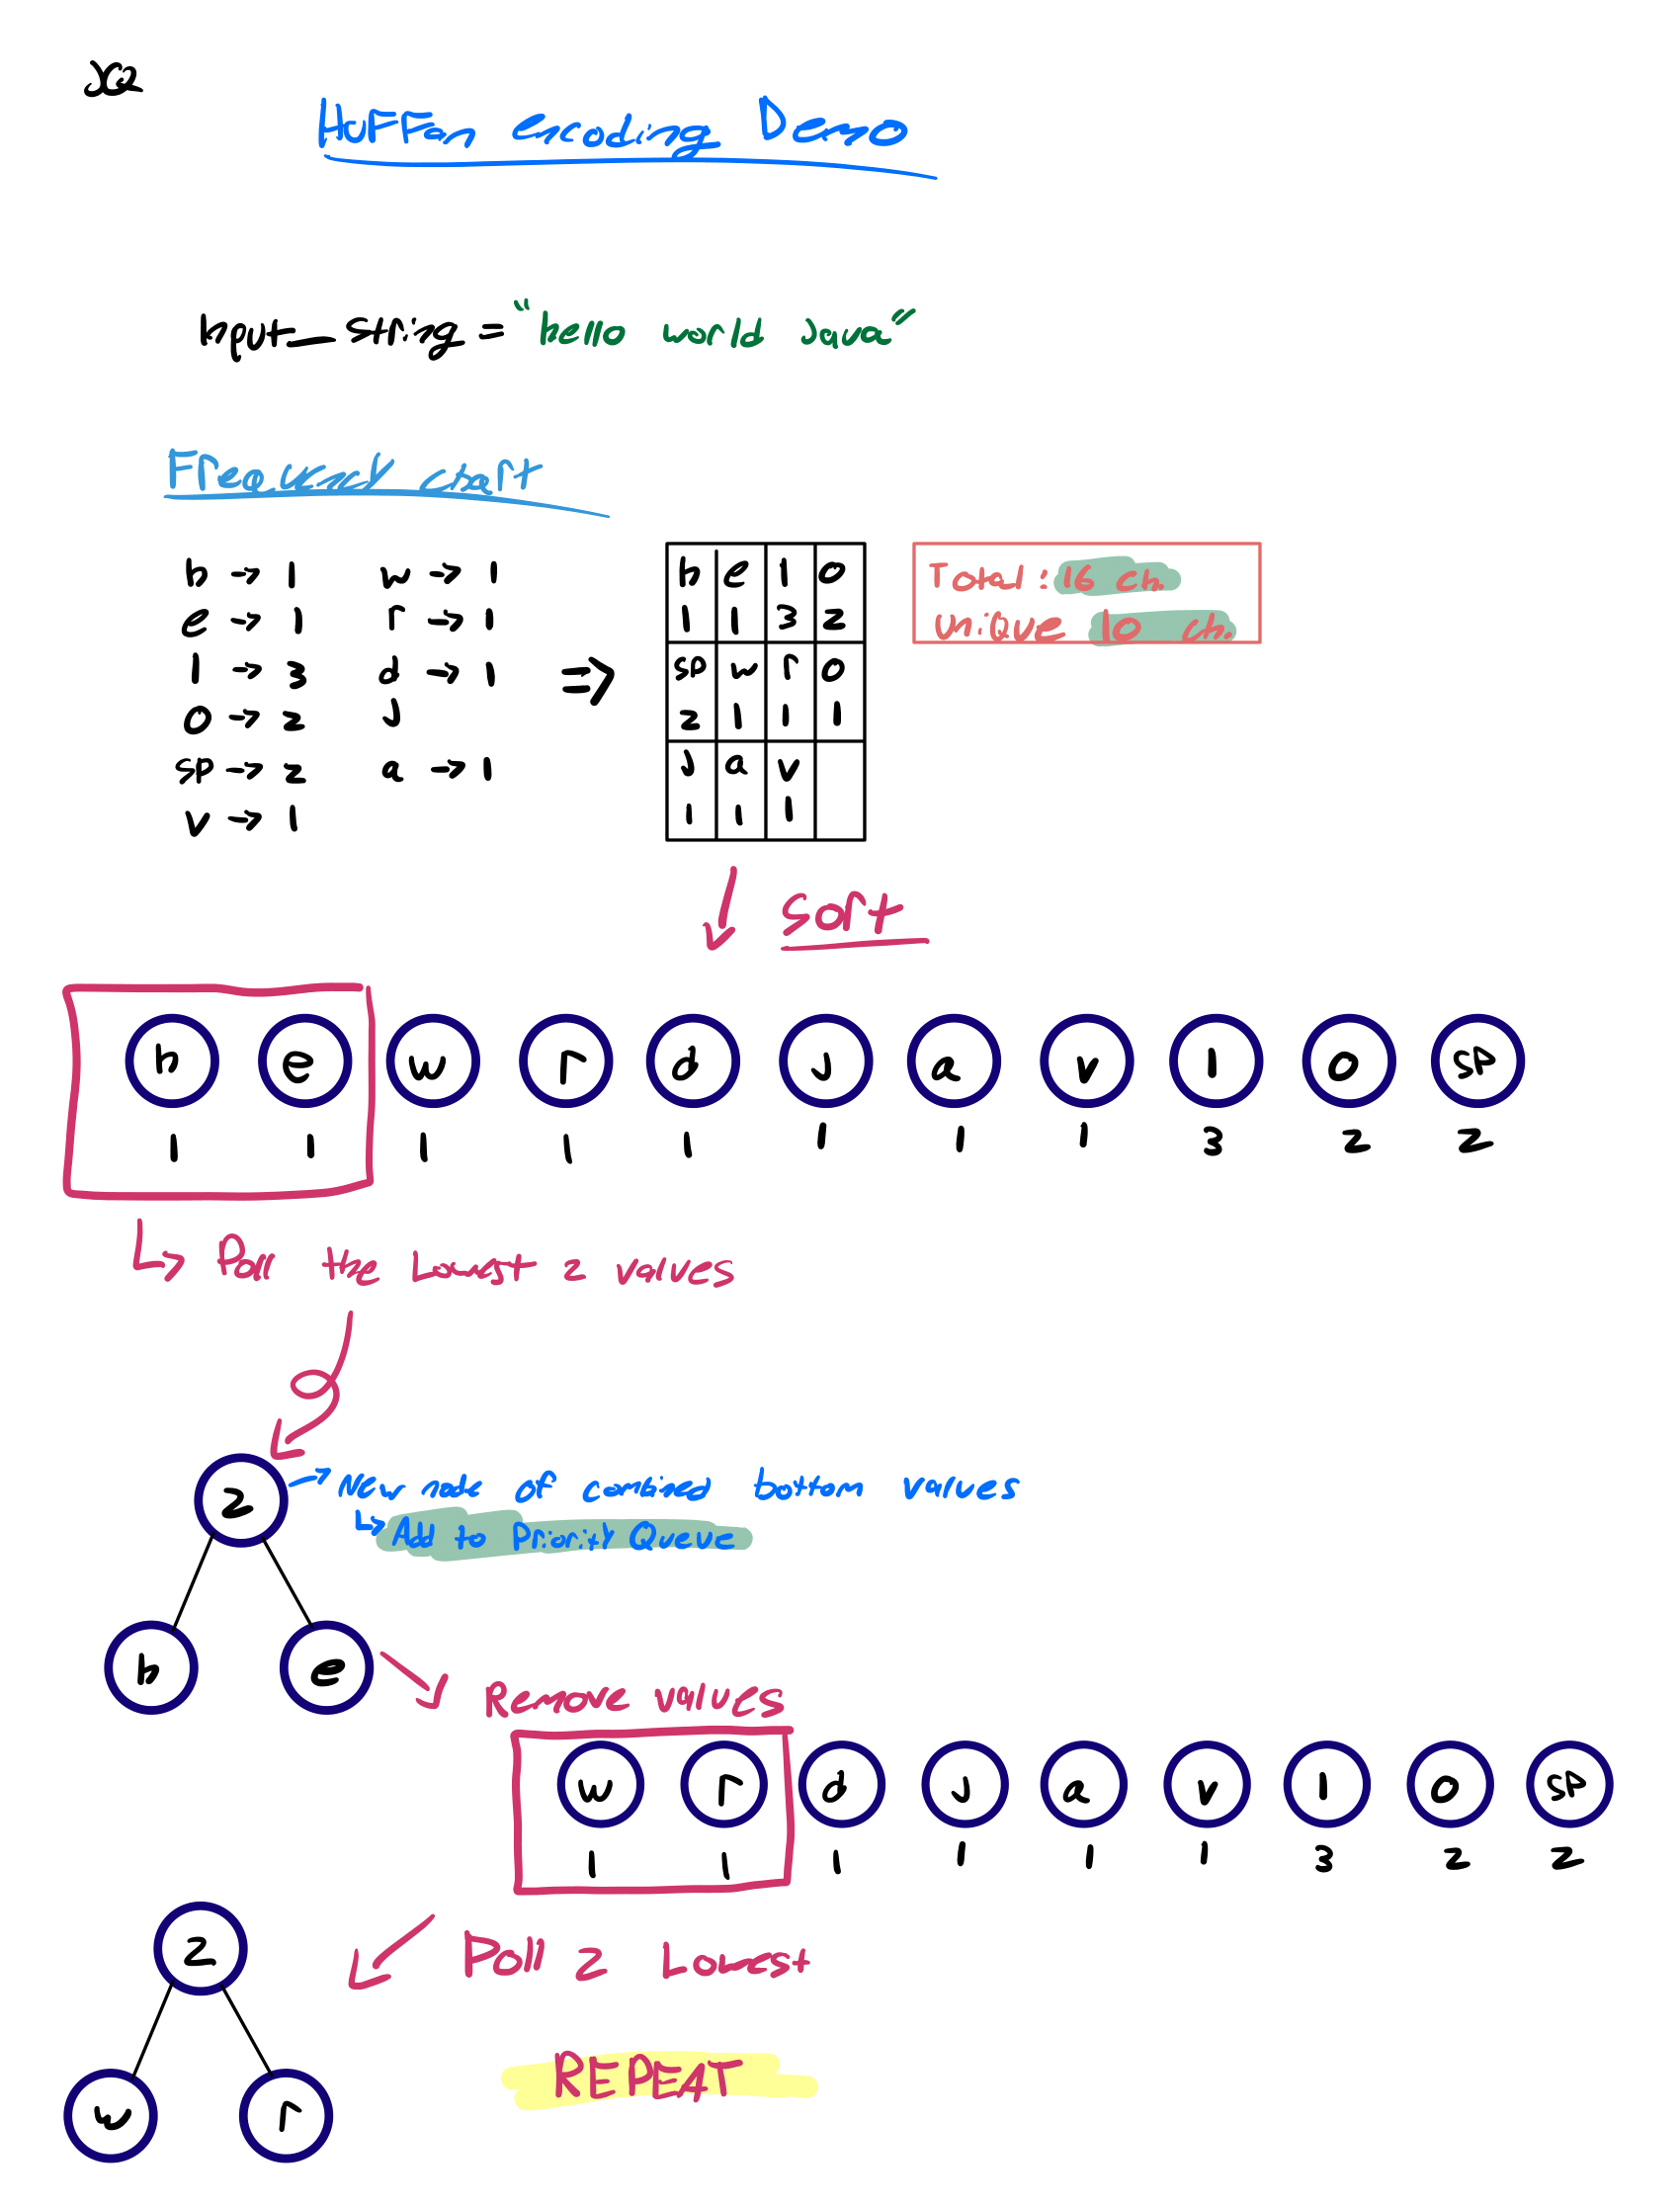 JCR
HuFFan encoding Demo
Input_string = "hello world Java"
Frequency chart
h -> 1 w -> 1
e -> 1 r -> 1
l -> 3 d -> 1
o -> 2 J
sp -> 2 a -> 1
v -> 1
=>
h e l o
1 1 3 2
sp w r o
2 1 1 1
J a v
1 1 1
Total: 16 ch.
unique 10 ch.
sort
h e w r d J a v l o sp
1 1 1 1 1 1 1 1 3 2 2
Poll the Lowest 2 values
2
New node of combined bottom values
Add to Priority Queue
h e
Remove values
w r d J a v l o sp
1 1 1 1 1 1 3 2 2
2
Poll 2 Lowest
REPEAT
w r